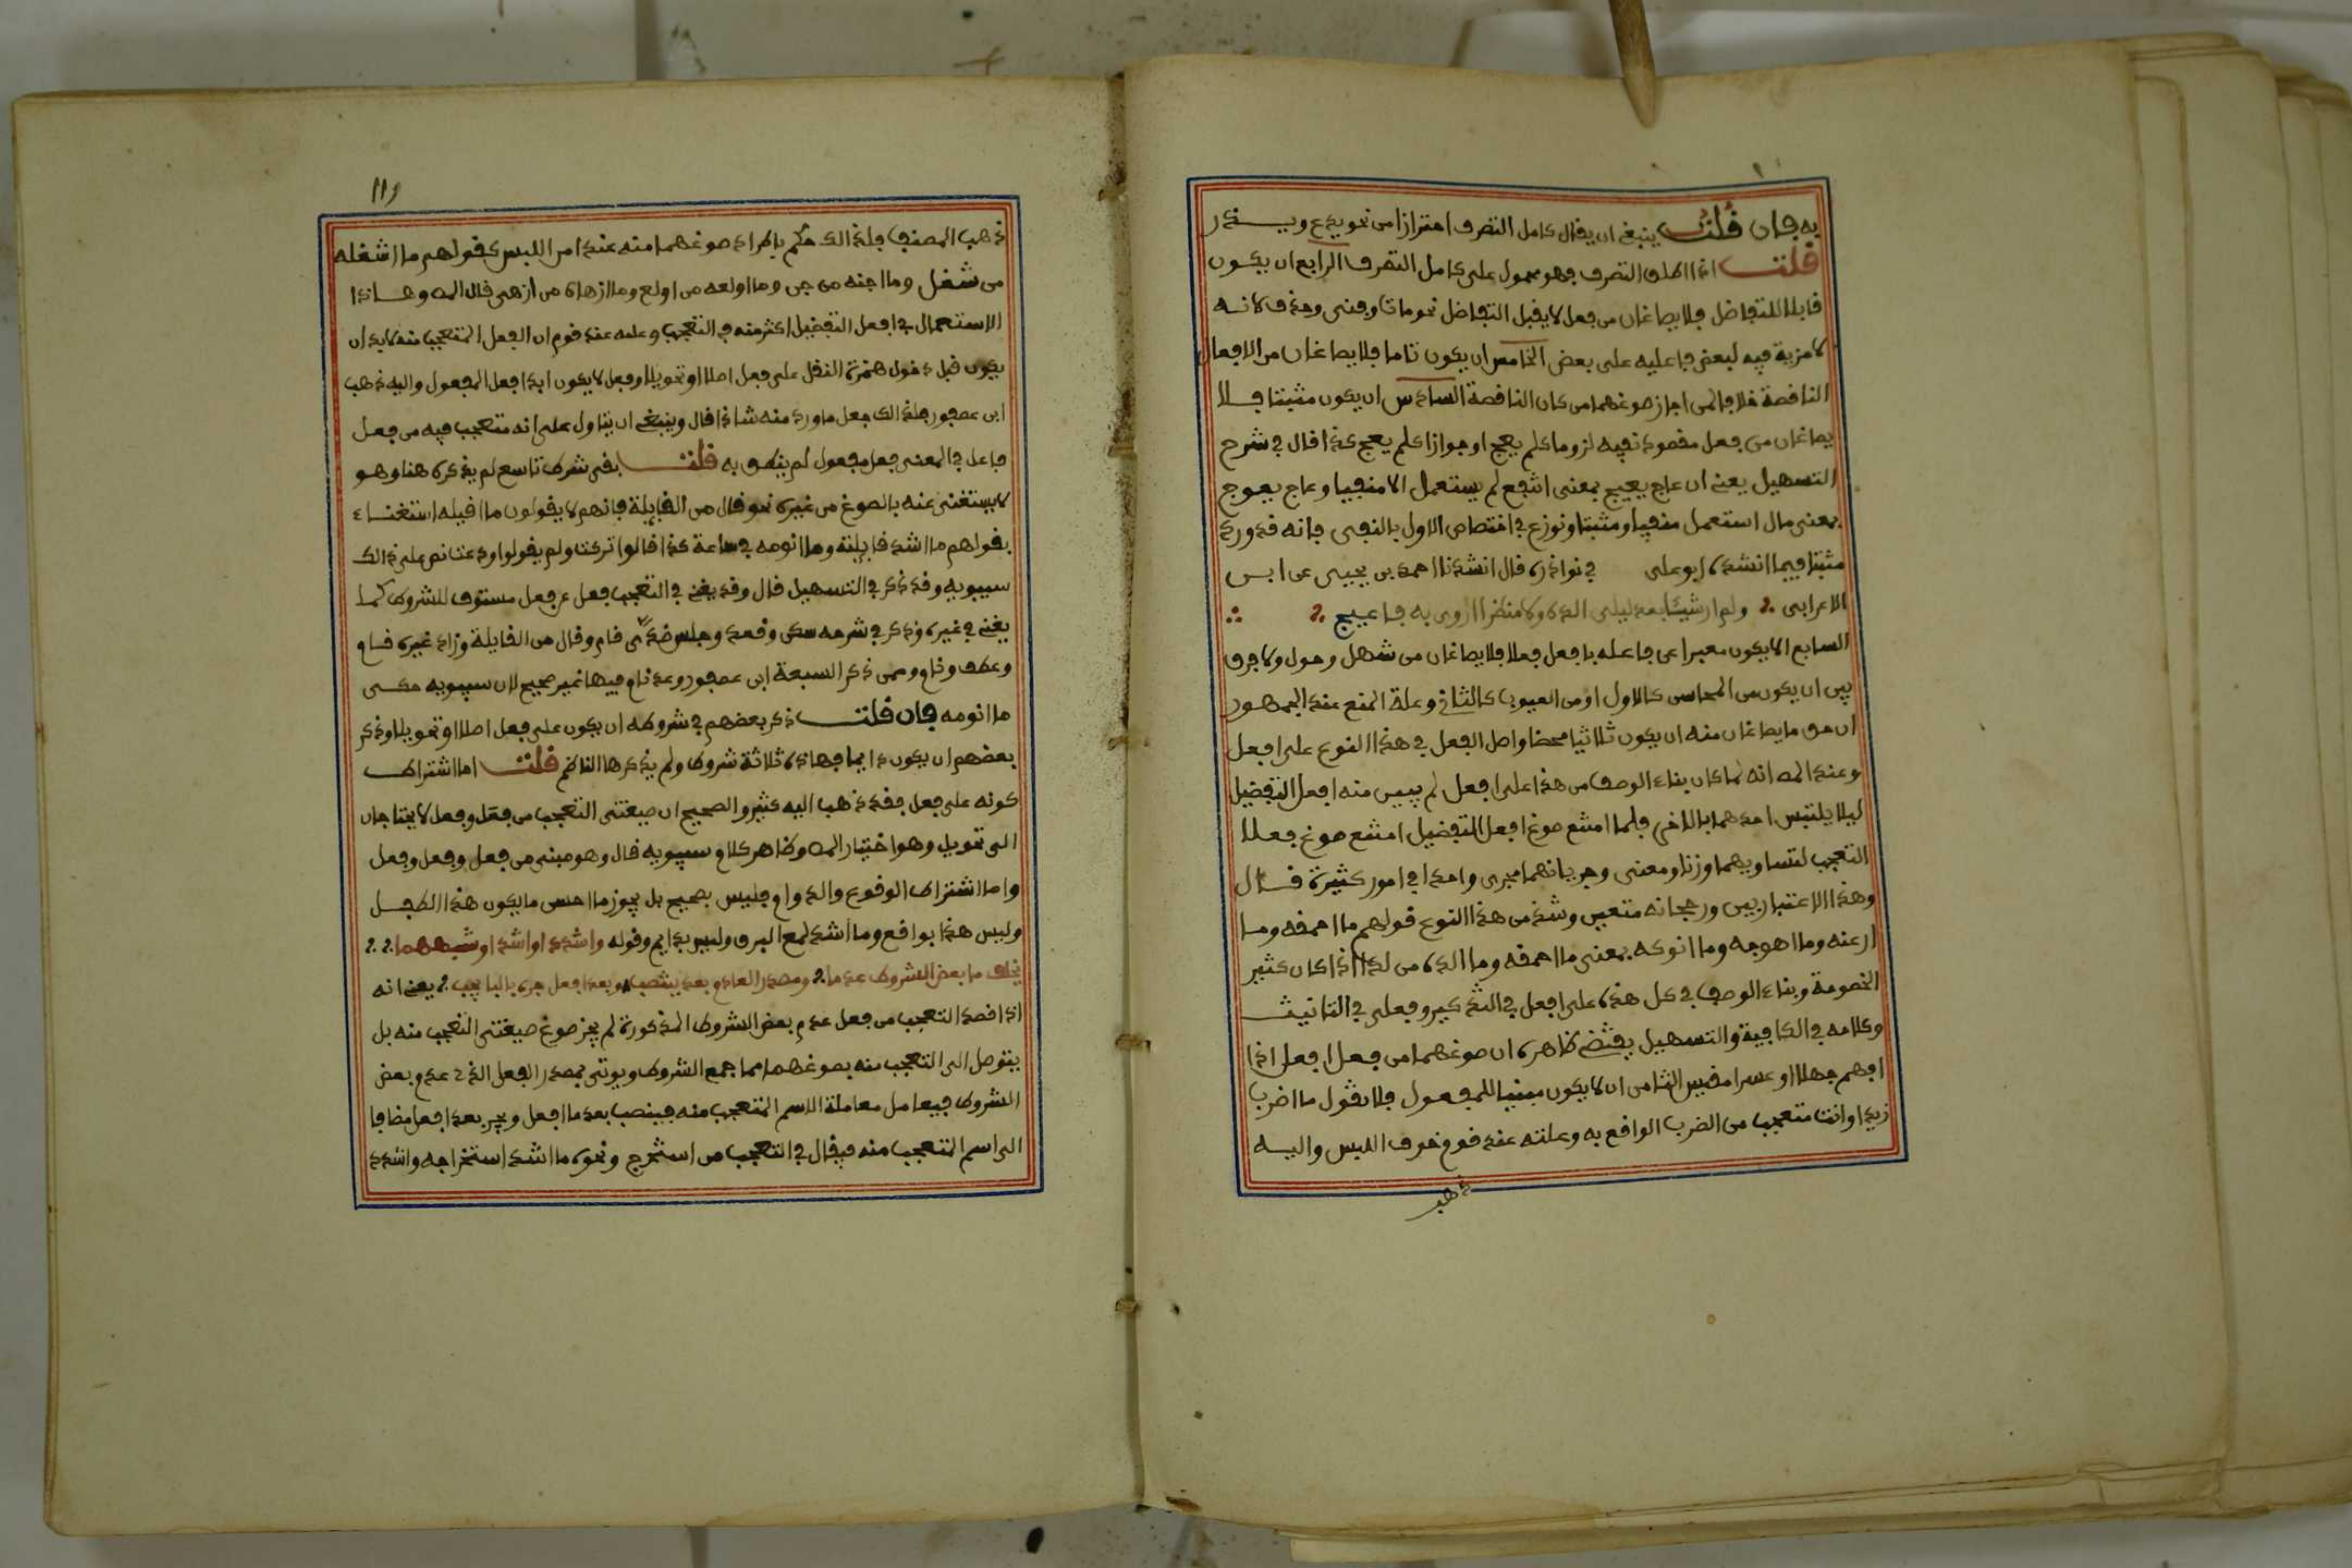 به فإن قلت ينبغي ان يقال كامل التصرف احترازا من نحو يدع ويـــذر
قلت اذا اطلق التصرف فهو محمول على كامل التصرف الرابع ان يكون
قابلا للتفاضل فلا يصاغان من فعل لا يقبل التفاضل نحو مات وفنى وحذف لانه
لا مزية فيه لبعض فاعليه على بعض الخامس ان يكون تاما فلا يصاغان من الافعال
الناقصة خلافا لمن اجاز صوغهما من كان الناقصة السادس ان يكون مثبتا فلا
يصاغان من فعل مقصود نفيه لزوما كلم يعج او جوازا كلم يعج كذا قال في شرح
التسهيل يعني ان عاج يعيج بمعنى انتفع لم يستعمل الا منفيا وعاج يعوج
بمعنى مال استعمل منفيا ومثبتا ونوزع في اختصاص الاول بالنفي فانه قد ورد
مثبتا فيما انشده ابو على في نوادره قال انشدنا احمد بن يحيى عن ابن
الاعرابي ولم ار شيئا بعد ليلى الذه ولا منظرا اروى به فاعيج
السابع الا يكون معبرا عن فاعله بافعل فعلا فلا يصاغان من شهل وحول ولا فرق
بين ان يكون من المحاسن كالاول او من العيوب كالثاني وعلة المنع عند الجمهور
ان حق ما يصاغان منه ان يكون ثلاثيا محضا واصل الفعل في هذا النوع على افعل
وعند المص انه لما كان بناء الوصف من هذا على افعل لم يبين منه افعل التفضيل
ليلا يلتبس احدهما بالاخر فلما امتنع صوغ افعل التفضيل امتنع صوغ فعلا
التعجب لتساويهما وزنا ومعنى وجريانهما مجرى واحدا في امور كثيرة قـال
وهذا الاعتبار بين ورجحانه متعين وشذ من هذا النوع قولهم ما احمقه وما
ارعنه وما اهوجه وما انوكه بمعنى ما احمقه وما الده من لد اذا كان كثير
الخصومة وبناء الوصف في كل هذه على افعل في التذكير وفعلى في التانيث
وكلامه في الكافية والتسهيل يقتضي ظاهره ان صوغهما من فعل افعل اذا
افهم جهلا او عسرا مقيس الثامن ان لا يكون مبنيا للمفعول فلا تقول ما اضرب
زيدا وانت متعجب من الضرب الواقع به وعلته عند قوم خوف اللبس واليه
ذهب
١١٩
ذهب المصنف فلذالك حكم باطراد صوغهما منه عند امن اللبس كقولهم ما اشغله
من شغل وما اجنه من جن وما اولعه من اولع وما ازهاه من ازهى قال المص وهـذا
الاستعمال في افعل التفضيل اكثر منه في التعجب وعلله عند قوم ان الفعل المتعجب منه لا بد ان
يكون قبل دخول همزة النقل على فعل اصلا او تحويلا وفعل لا يكون ابدا فعل المفعول واليه ذهب
ابن عصفور فلذالك جعل ما ورد منه شاذا قال وينبغي ان يتاول على انه متعجب فيه من فعل
فاعل في المعنى فعل مفعول لم ينطق به قلت بقى شرط تاسع لم يذكره هنا وهو
لا يستغنى عنه بالصوغ من غيره نحو قال من القايلة فانهم لا يقولون ما اقيله استغناء
بقولهم ما اشد قايلته وما انومه في ساعة كذا قالوا تركت ولم يقولوا ودعت نص على ذالك
سيبويه وقد ذكر في التسهيل قال وقد يغني في التعجب فعل عن فعل مستوف للشروط كما
يغنى في غيره وذكر في شرحه سكر وقعد وجلس ضدى قام وقال من القايلة وزاد غيره قام
وغضب ونام وممن ذكر السبعة ابن عصفور وعد نام فيها غير صحيح لان سيبويه حكى
ما انومه فإن قلت ذكر بعضهم في شروطه ان يكون على فعل اصلا او تحويلا وذكر
بعضهم ان يكون دايما فهاذه ثلاثة شروط ولم يذكرها الناظم قلت اما اشتراط
كونه على فعل فقد ذهب اليه كثير والصحيح ان صيغتى التعجب من فعل وفعل لا يحتاجان
الى تحويل وهو اختيار المص وظاهر كلام سيبويه قال وهو مبنى من فعل وفعل وفعل
واما اشتراط الوقوع والدوام فليس بصحيح بل يجوز ما احسن ما يكون هذا الطفل
وليس هذا بواقع وما اشد لمع البرق وليس بدايم وقوله واشدد او اشد او شبههما
يخلف ما بعض الشروط عدما ومصدر العادم بعد ينتصب وبعد افعل جره بالبا يجب يعني انه
اذا قصد التعجب من فعل عدم بعض الشروط المذكورة لم يجز صوغ صيغتى التعجب منه بل
يتوصل الى التعجب منه بصوغهما مما جمع الشروط ويوتى بمصدر الفعل الذي عدم بعض
الشروط فيعامل معاملة الاسم المتعجب منه فينصب بعد ما افعل ويجر بعد افعل مضافا
الى اسم المتعجب منه فيقال في التعجب من استخرج ونحوه ما اشد استخراجه واشدد